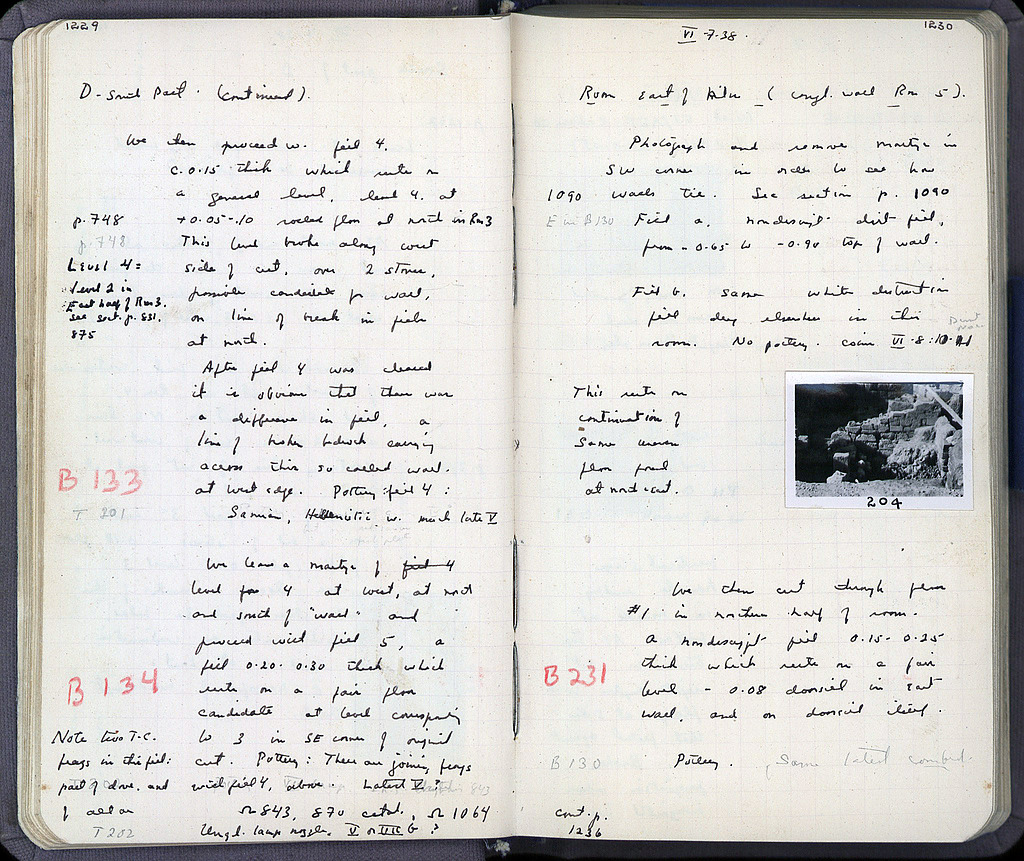 1229
D - South Part. (continued).
We then proceed w. fill 4.
c. 0.15 thick which rests on
a general level, level 4, at
p. 748
+0.05-.10 rocked floor at north in Rm 3
p. 748
This level broke along west
Level 4 =
side of cut, over 2 stones,
level 2 in
possible candidate for wall,
East half of Rm 3.
on line of break in fill
see sect. p. 831,
875
at north.
After fill 4 was cleared
it is obvious that there was
a difference in fill, a
line of broken bedrock carrying
across this so called wall.
B 133
at west edge. Pottery: fill 4:
T 201
Samian, Hellenistic w. much late V
We leave a martyr of fill 4
level for 4 at west, at north
and south of "wall" and
proceed with fill 5, a
fill 0.20-0.30 thick which
B 134
rests on a fair floor
candidate at level corresponding
Note two T-C.
to 3 in SE corner of original
frags in this fill:
cut. Pottery: There are joining frags
part of dove, and
with fill 4, above. Latest V?
of
843, 870 catal., 1064
T 202
Ungl. lamp nozzle. V or VII ?
1230
VI-7-38.
Room East of Kiln (ungl. wall Rm 5).
Photograph and remove martyr in
SW corner in order to see how
1090 walls tie. See section p. 1090
E in B 130
Fill a, nondescript dirt fill,
from -0.65 to -0.90 top of wall.
Fill b, same white destruction
fill dug elsewhere in this
room. No pottery. coin VI-8:10
This rests on
continuation of
same uneven
floor found
at northeast.
204
We then cut through floor
#1 in northern half of room.
A nondescript fill 0.15-0.25
B 231
thick which rests on a fair
level -0.08 doorsill in East
wall, and on doorsill itself.
B 130
Pottery. Same latest comprd.
cont. p.
1236